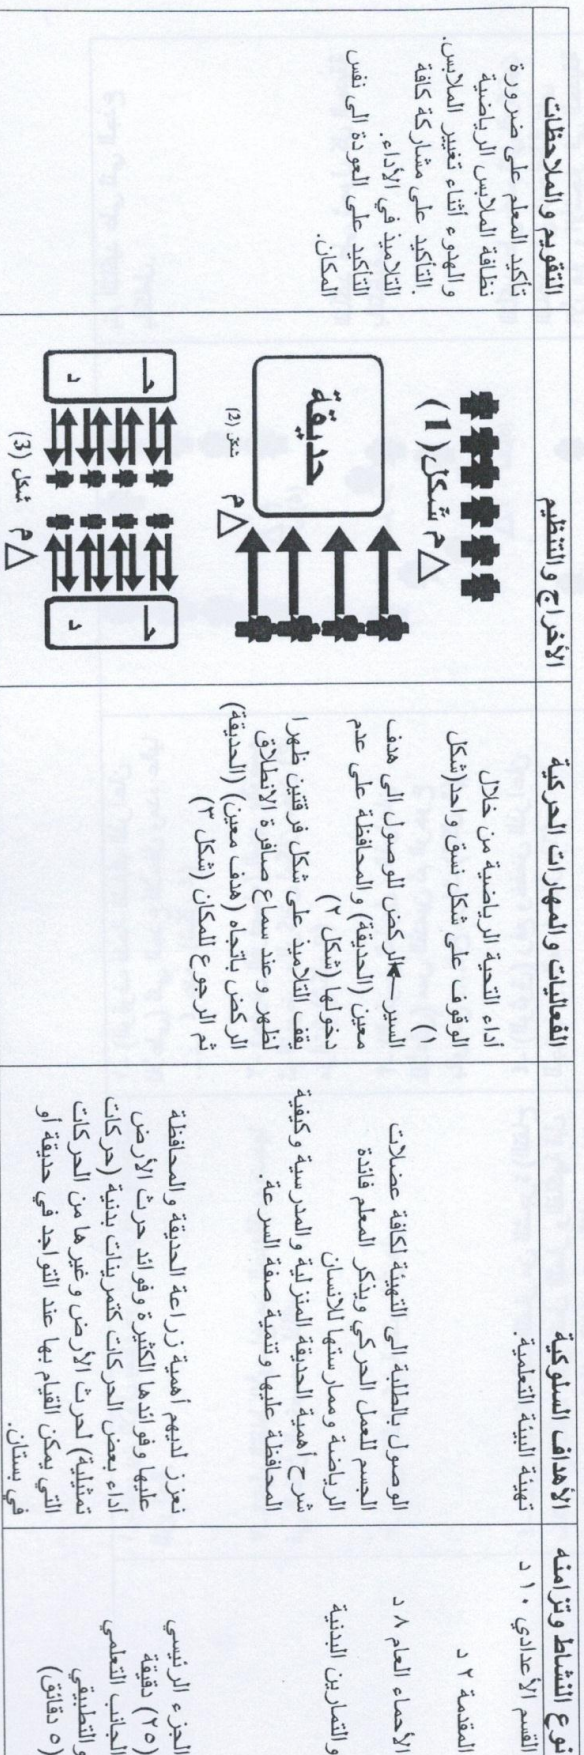 نوع النشاط وتزامنه
القسم الأعدادي ١٠ د
المقدمة ٢ د
الأحماء العام ٨ د
و التمارين البدنية
الجزء الرئيسي
(٢٥) دقيقة
الجانب التعلمي
والتطبيقي
(٥ دقائق)
الأهداف السلوكية
تهيئة البيئة التعلمية.
الوصول بالطلبة الى التهيئة لكافة عضلات
الجسم للعمل الحركي ويذكر المعلم فائدة
الرياضة وممارستها للانسان
شرح أهمية الحديقة المنزلية والمدرسية وكيفية
المحافظة عليها وتنمية صفة السرعة.
نعزز لديهم أهمية زراعة الحديقة والمحافظة
عليها وفوائدها الكثيرة وفوائد حرث الأرض
أداء بعض الحركات كتمرينات بدنية (حركات
تمثيلية) لحرث الأرض وغيرها من الحركات
التي يمكن القيام بها عند التواجد في حديقة أو
في بستان.
الفعاليات والمهارات الحركية
أداء التحية الرياضية من خلال
الوقوف على شكل نسق واحد(شكل
١)
السير←الركض للوصول الى هدف
معين (الحديقة) والمحافظة على عدم
دخولها (شكل ٢)
يقف التلاميذ على شكل فرقتين ظهرا
لظهر وعند سماع صافرة الانطلاق
الركض باتجاه (هدف معين) (الحديقة)
ثم الرجوع للمكان (شكل ٣)
الأخراج والتنظيم
م شكل(1)
حديقة
م
شكل (2)
حـ
د
حـ
د
م
شكل (3)
التقويم والملاحظات
تأكيد المعلم على ضرورة
نظافة الملابس الرياضية
والهدوء أثناء تغيير الملابس.
.التأكيد على مشاركة كافة
التلاميذ في الأداء.
التأكيد على العودة الى نفس
المكان.